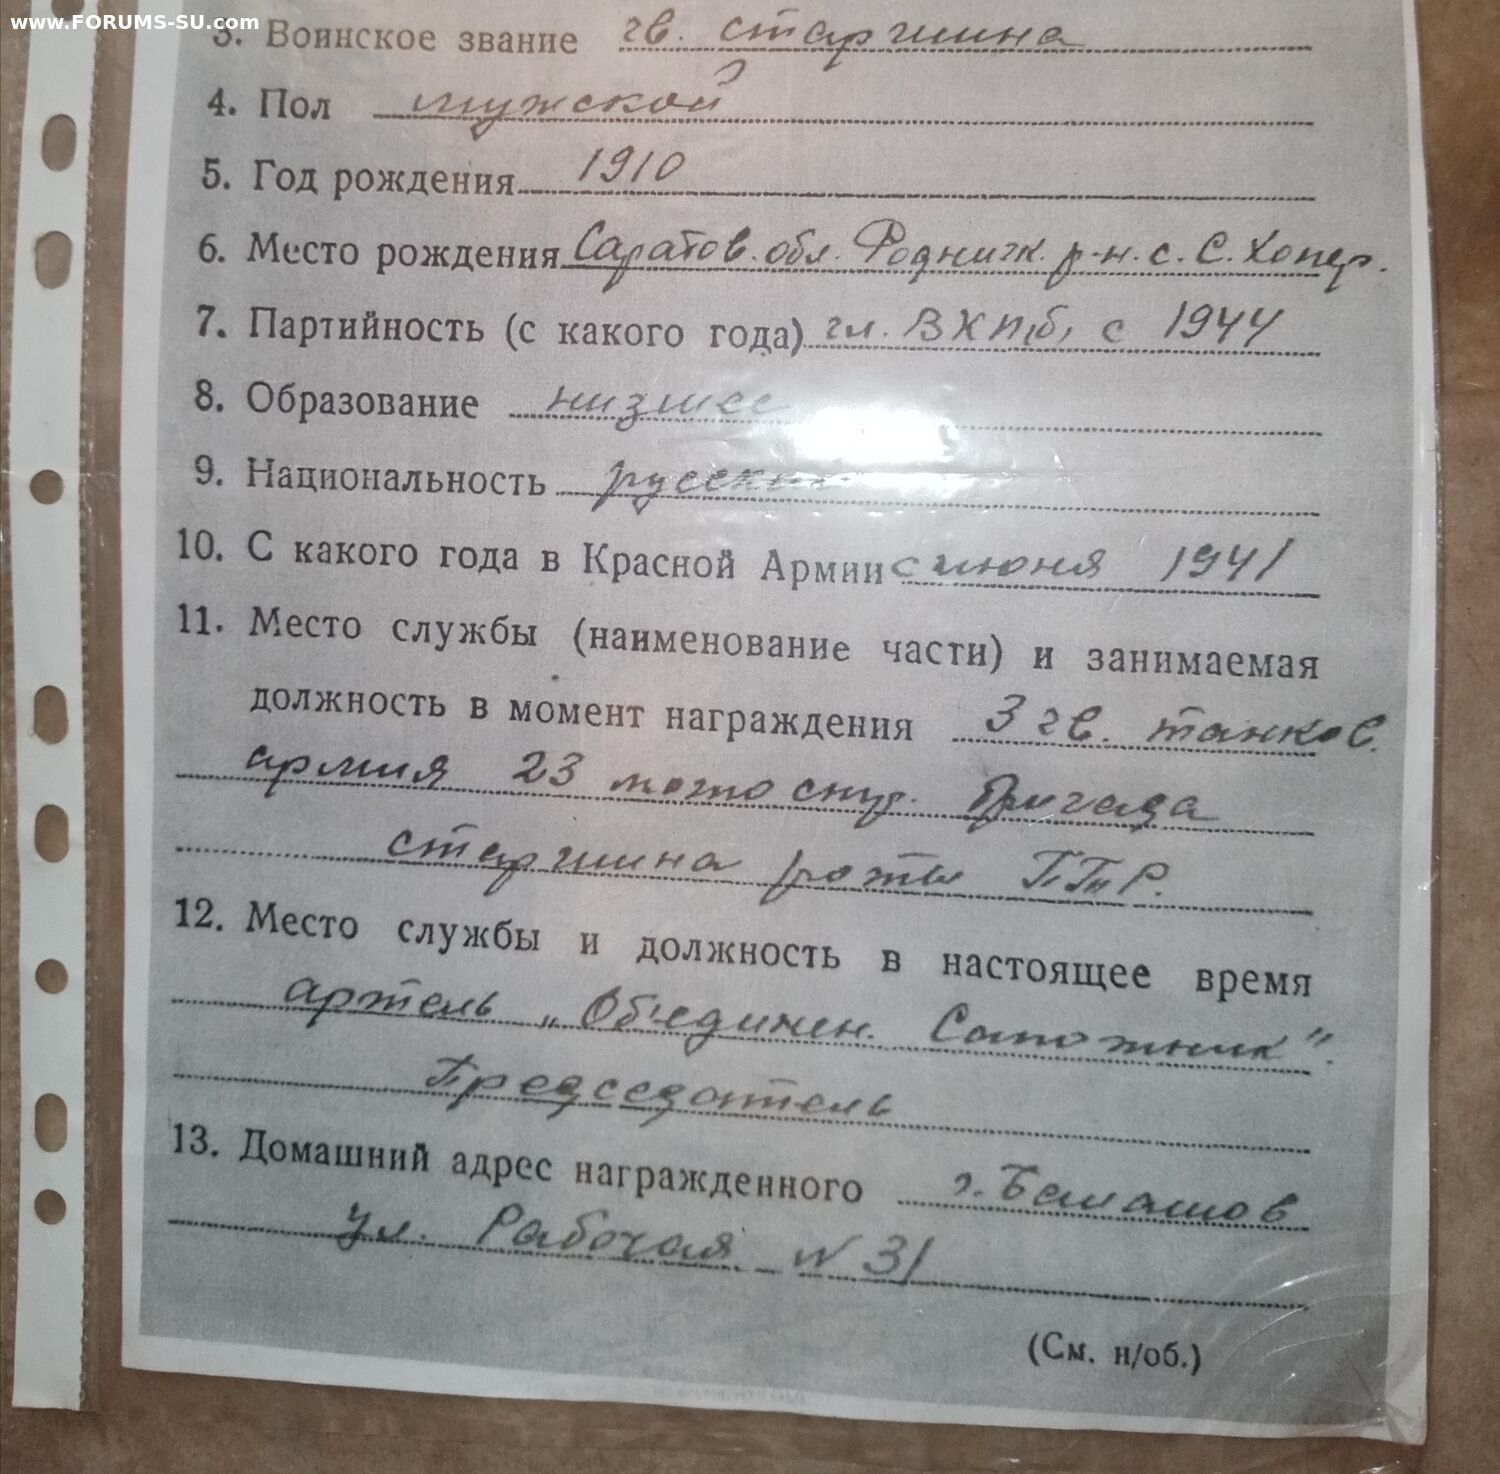 www.FORUMS-SU.com
3. Воинское звание гв. старшина
4. Пол мужской
5. Год рождения 1910
6. Место рождения Саратов. обл. Родничк. р-н. с. С. Хопер.
7. Партийность (с какого года) чл. ВКП(б) с 1944
8. Образование низшее
9. Национальность русский
10. С какого года в Красной Армии с июня 1941
11. Место службы (наименование части) и занимаемая
должность в момент награждения 3 гв. танков.
армия 23 мотострел. бригада
старшина роты ПТР.
12. Место службы и должность в настоящее время
артель „Объединен. Сапожник".
Председатель
13. Домашний адрес награжденного г. Балашов
ул. Рабочая N 31
(См. н/об.)